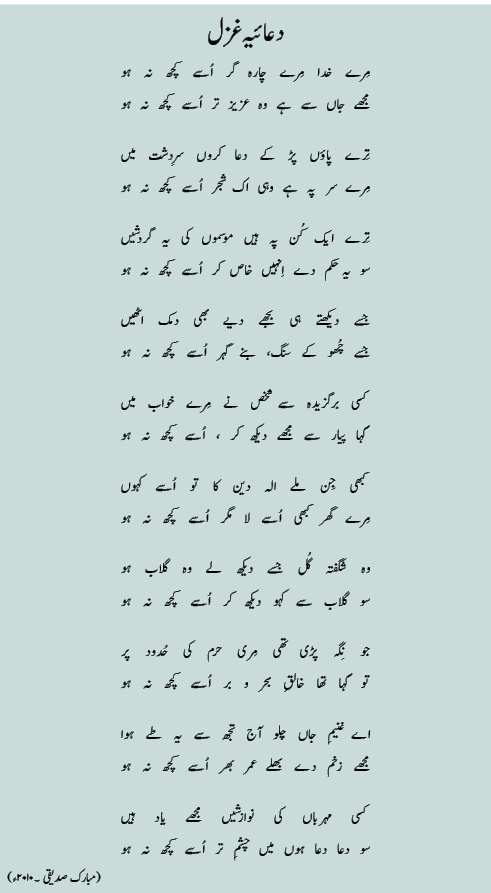 دعائیہ غزل
مِرے خدا مِرے چارہ گر اُسے کچھ نہ ہو
مجھے جاں سے ہے وہ عزیز تر اُسے کچھ نہ ہو
تِرے پاؤں پڑ کے دعا کروں سرِدشت میں
مِرے سر پہ ہے وہی اک شجر اُسے کچھ نہ ہو
تِرے ایک کُن پہ ہیں موسموں کی یہ گردشیں
سو یہ حکم دے اِنہیں خاص کر اُسے کچھ نہ ہو
جسے دیکھتے ہی بجھے دیے بھی دمک اٹھیں
جسے چُھو کے سنگ، بنے گہر اُسے کچھ نہ ہو
کسی برگزیدہ سے شخص نے مِرے خواب میں
کہا پیار سے مجھے دیکھ کر ، اُسے کچھ نہ ہو
کبھی جِن ملے الہ دین کا تو اُسے کہوں
مِرے گھر کبھی اُسے لا مگر اُسے کچھ نہ ہو
وہ شگفتہ گُل جسے دیکھ لے وہ گلاب ہو
سو گلاب سے کہو دیکھ کر اُسے کچھ نہ ہو
جو نِگہ پڑی تھی مِری حرم کی حُدود پر
تو کہا تھا خالقِ بحر و بر اُسے کچھ نہ ہو
اے غنیمِ جاں چلو آج تجھ سے یہ طے ہوا
مجھے زخم دے بھلے عمر بھر اُسے کچھ نہ ہو
کسی مہرباں کی نوازشیں مجھے یاد ہیں
سو دعا دعا ہوں میں چشمِ تر اُسے کچھ نہ ہو
(مبارک صدیقی ۔۲۰۱۰ء)